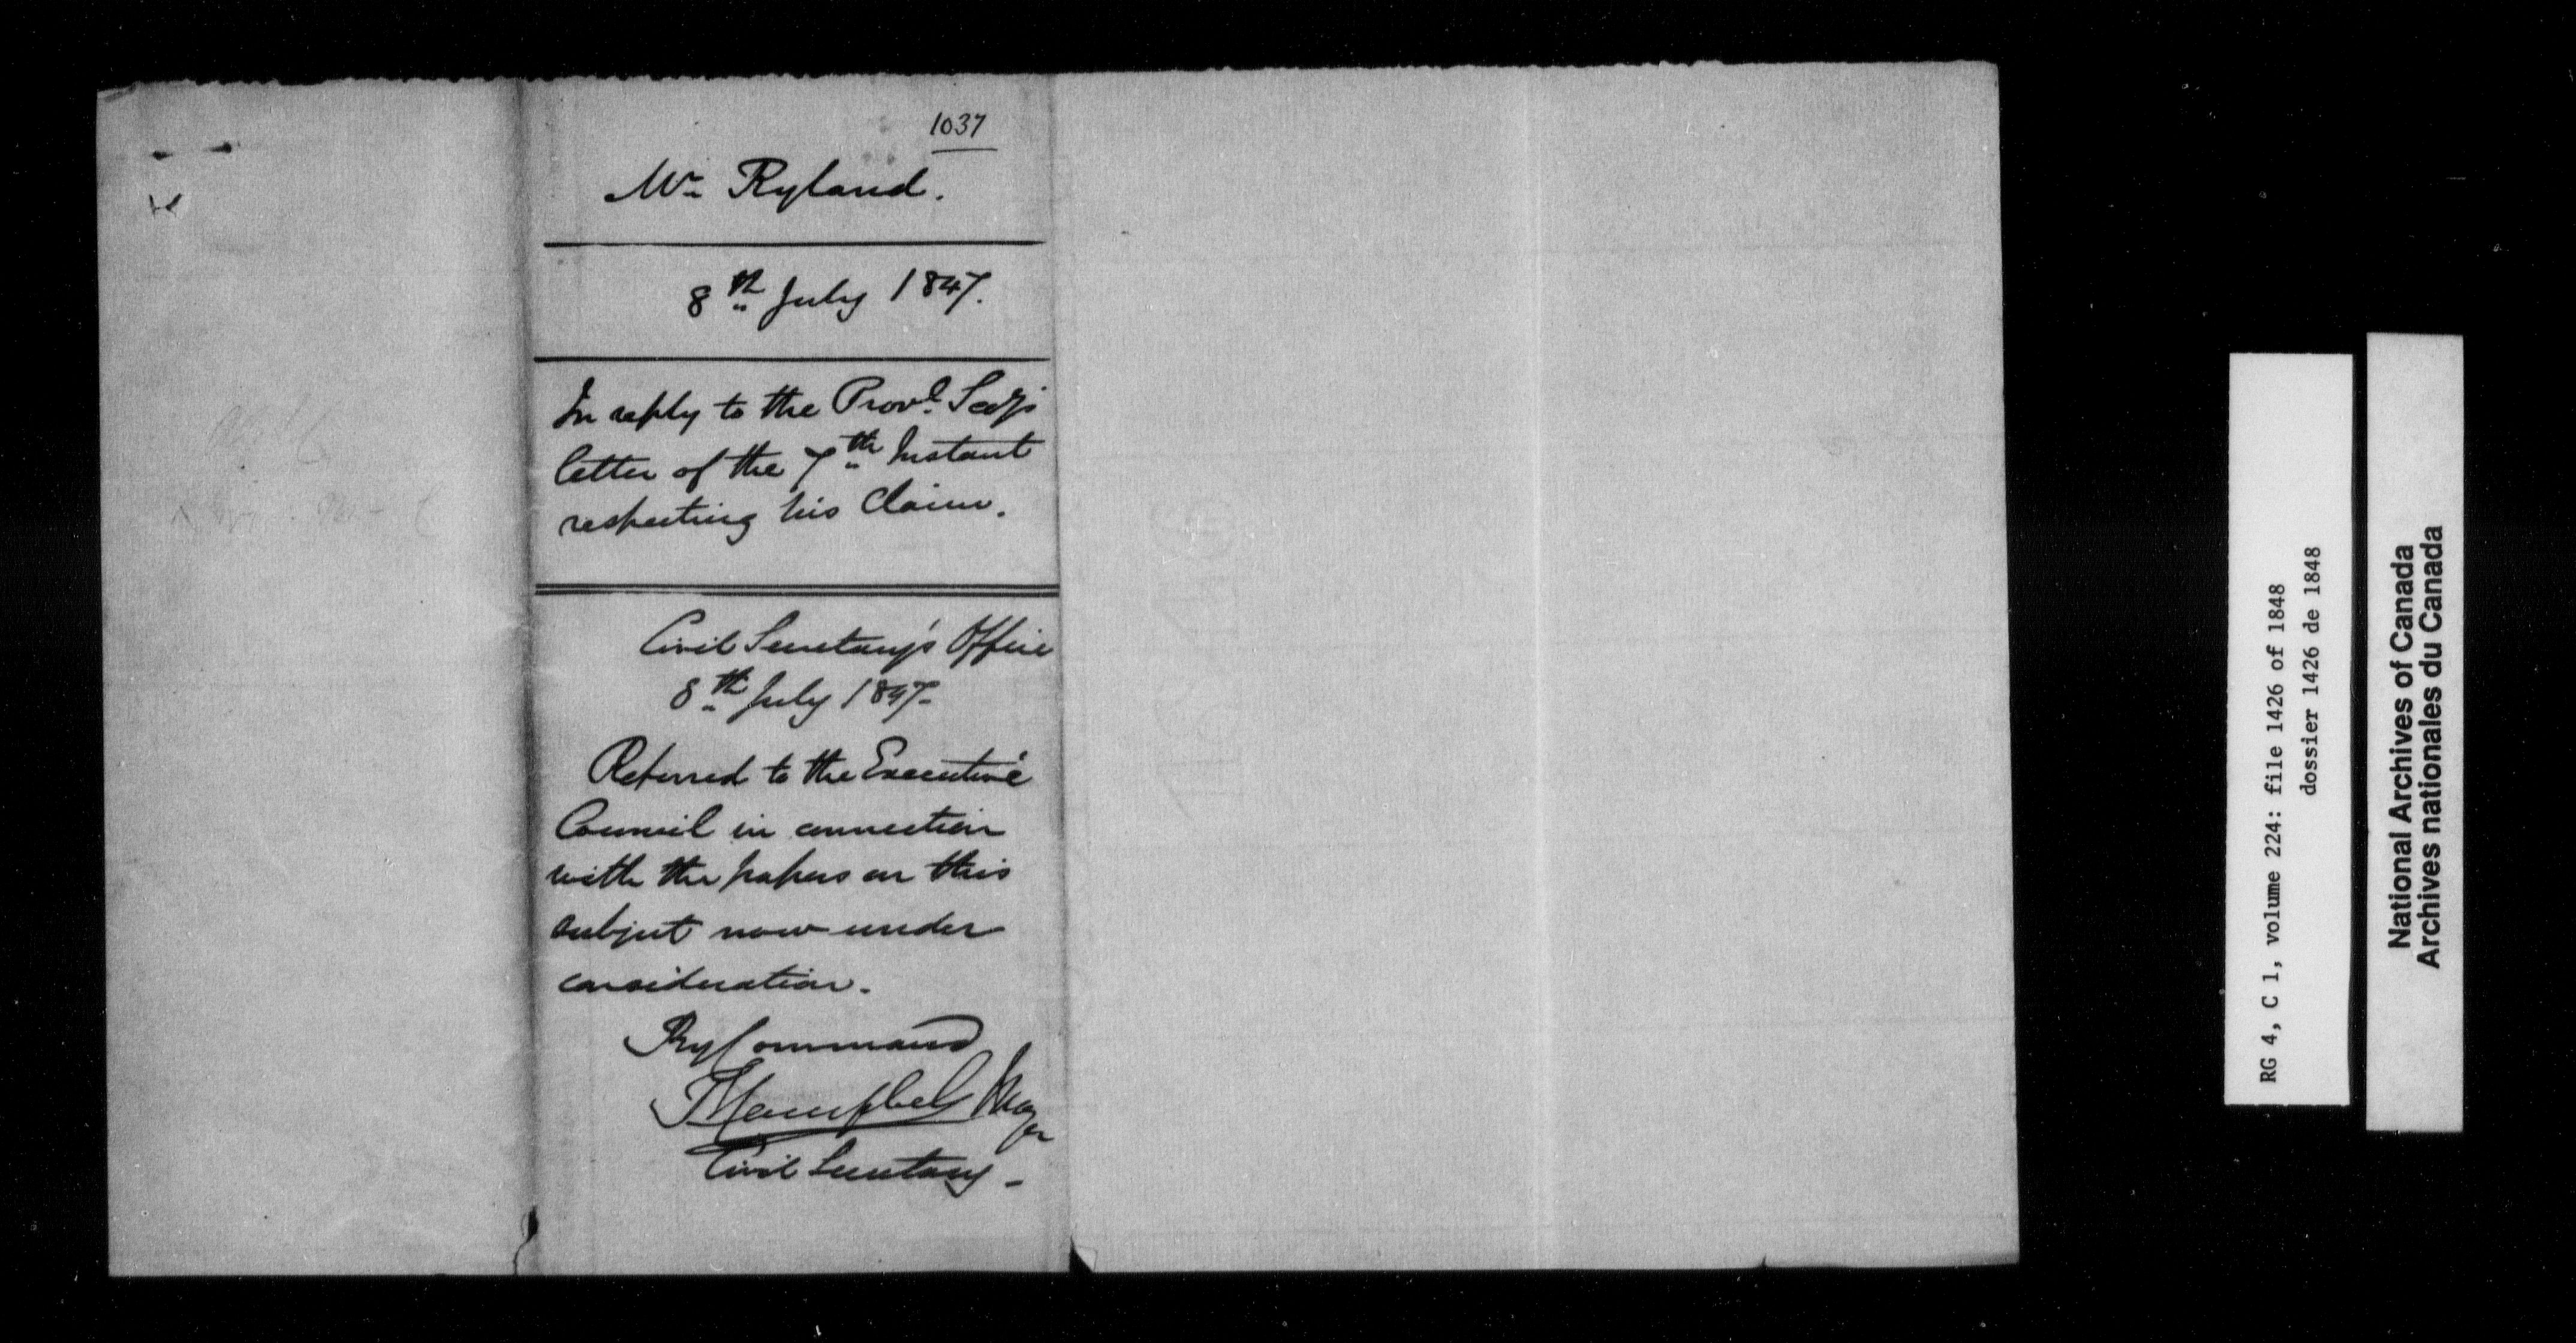 1037
Mr Ryland.
8th July 1847.
In reply to the Provl. Secy's
letter of the 7th Instant
respecting his Claim.
Civil Secretary's Office
8th July 1847-
Referred to the Executive
Council in connection
with the papers on this
subject now under
consideration.
By Command
Campbell Major
Civil Secretary-
RG 4, C 1, volume 224: file 1426 of 1848
dossier 1426 de 1848
National Archives of Canada
Archives nationales du Canada